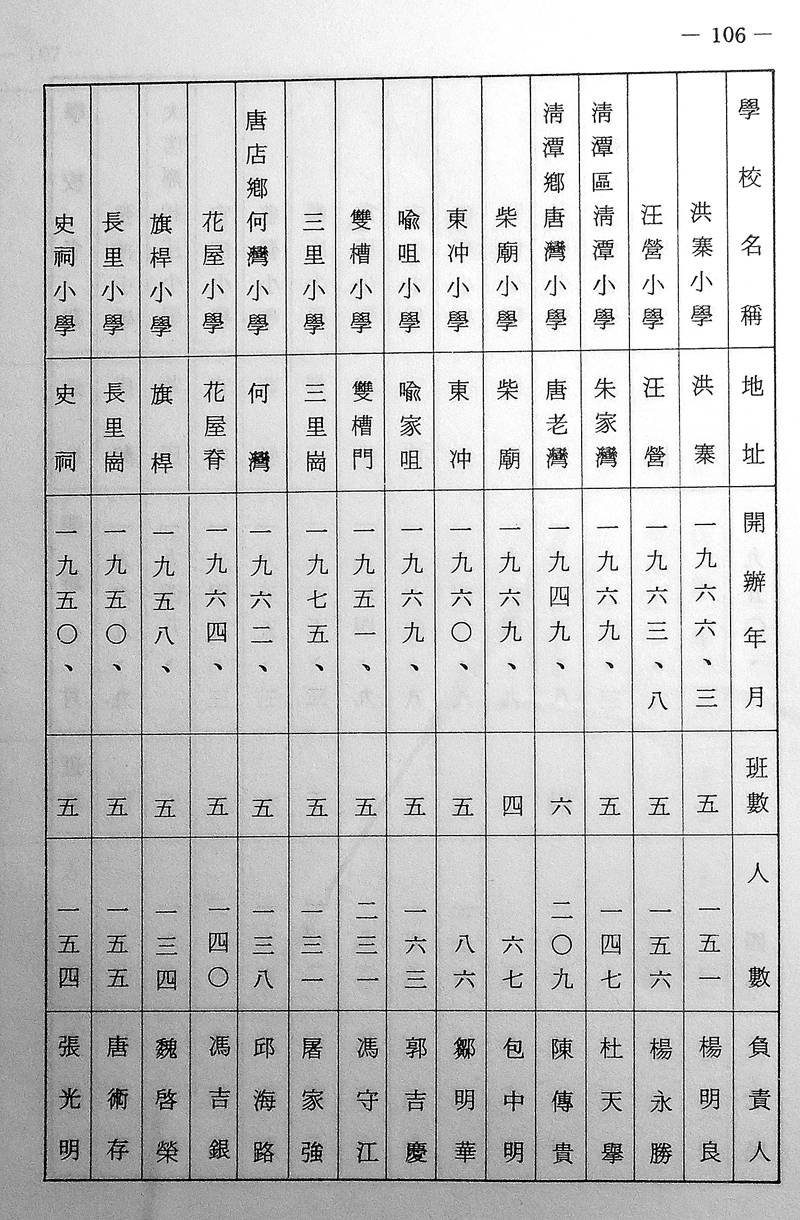 — 106 —
學校名稱 地址 開辦年月 班數 人數 負責人
洪寨小學 洪寨 一九六六、三 五 一五一 楊明良
汪營小學 汪營 一九六三、八 五 一五六 楊永勝
淸潭區淸潭小學 朱家灣 一九六九、 五 一四七 杜天擧
淸潭鄉唐灣小學 唐老灣 一九四九、 六 二〇九 陳傳貴
柴廟小學 柴廟 一九六九、 四 六七 包中明
東冲小學 東冲 一九六〇、 五 八六 鄒明華
喩咀小學 喩家咀 一九六九、 五 一六三 郭吉慶
雙槽小學 雙槽門 一九五一、 五 二三一 馮守江
三里小學 三里崗 一九七五、 五 一三一 屠家強
唐店鄉何灣小學 何灣 一九六二、 五 一三八 邱海路
花屋小學 花屋脊 一九六四、 五 一四〇 馮吉銀
旗桿小學 旗桿 一九五八、 五 一三四 魏啓榮
長里小學 長里崗 一九五〇、 五 一五五 唐術存
史祠小學 史祠 一九五〇、 五 一五四 張光明